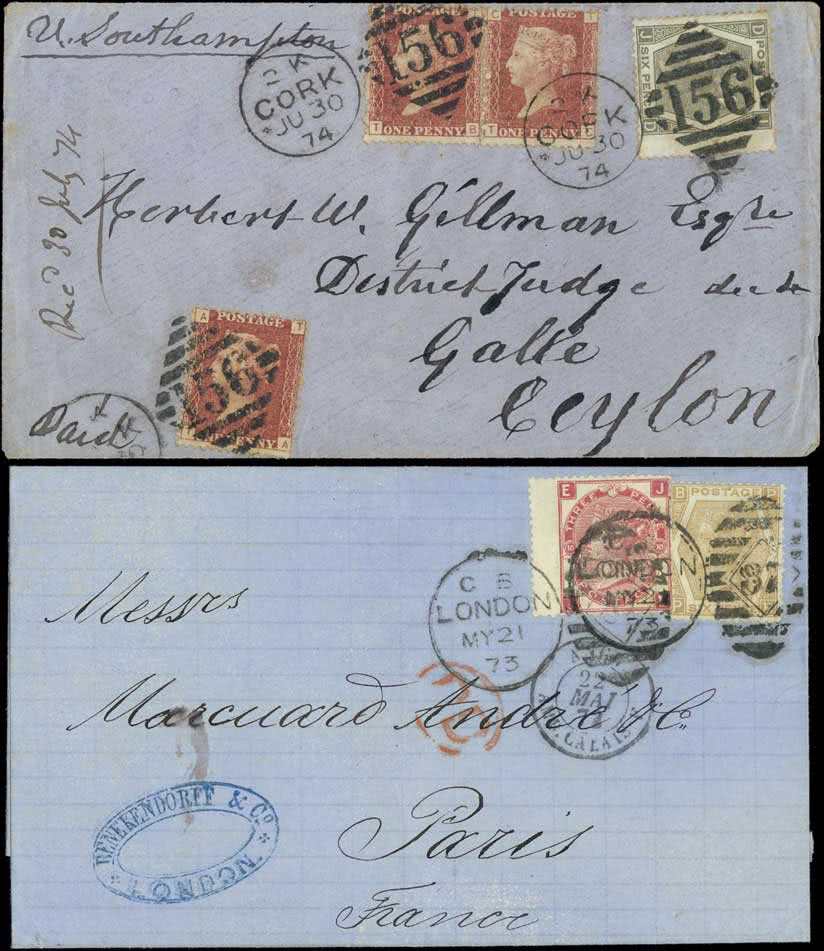 V. Southampton
2 K
CORK
JU 30
74
156
T ONE PENNY B
C T
T ONE PENNY C
2 K
CORK
JU 30
74
J D
SIX PEN
POS
D
156
Rec'd 30 July 74
Herbert W. Gillman Esqre
District Judge
Galle
Ceylon
Paid
A POSTAGE T
156
PENNY A
E J
THREE PENCE
10
10
B POSTAGE P
P SIX
C B
LONDON
MY 21
73
LONDON
MY 21
73
22
MAI
CALAIS
Messrs
Marcuard André & Co.
Paris
France
BENEKENDORFF & Co
LONDON